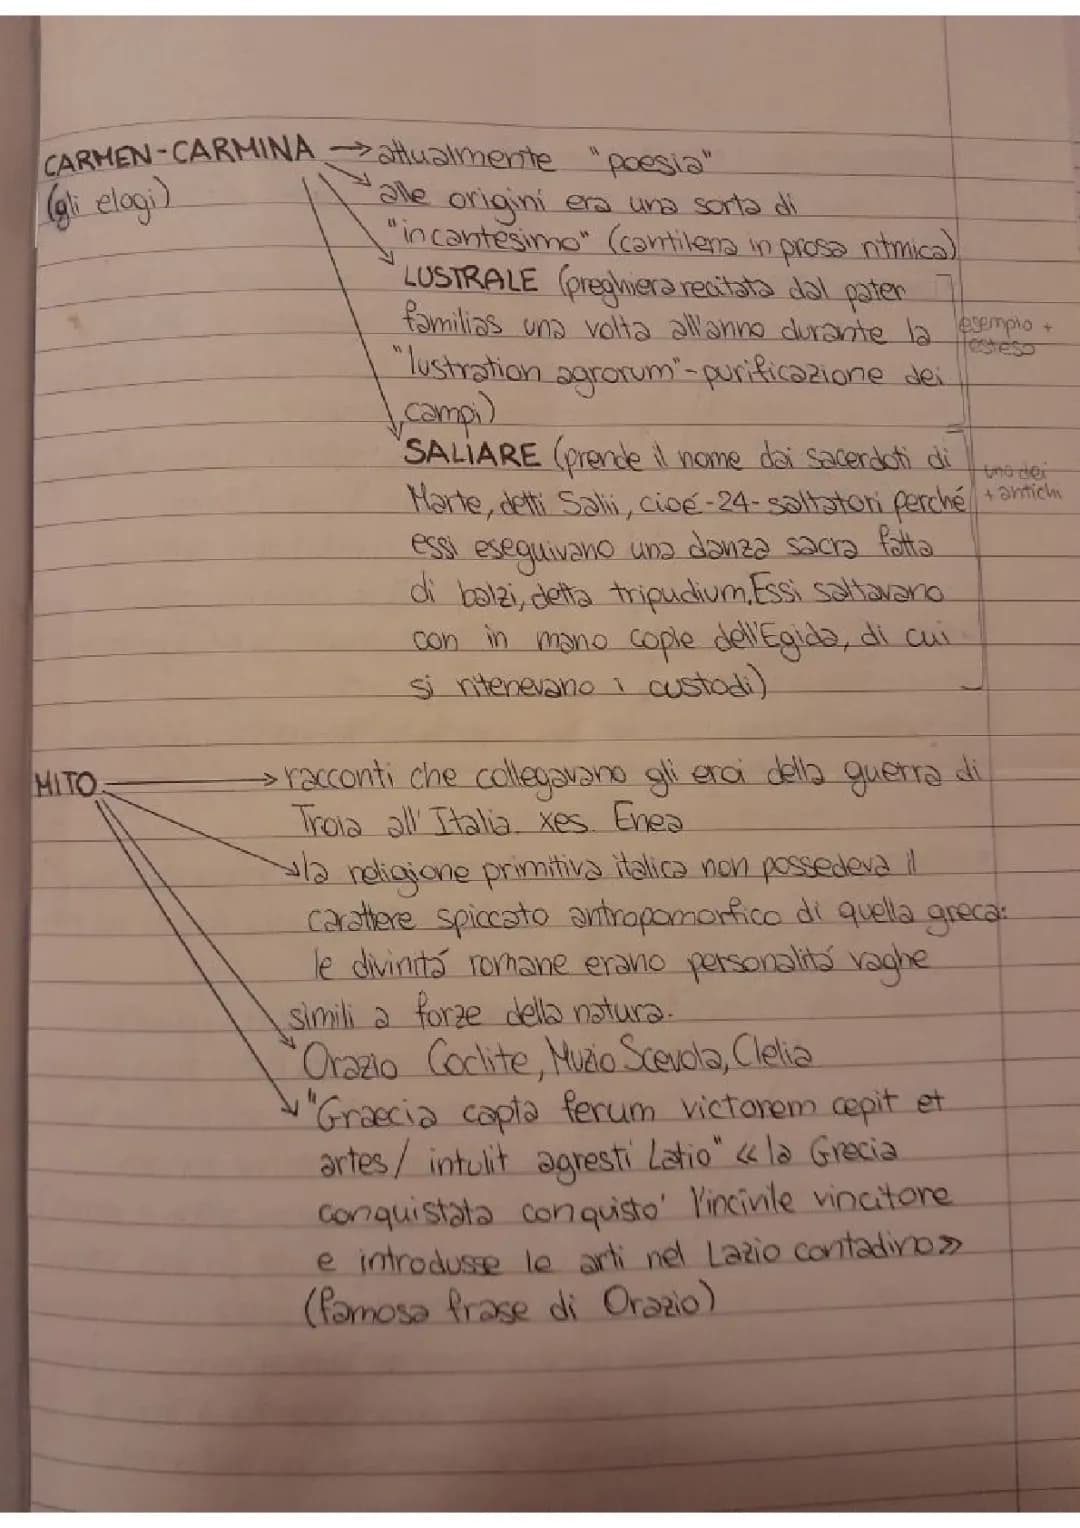 CARMEN-CARMINA → attualmente "poesia"
(gli elogi)
alle origini era una sorta di
"incantesimo" (cantilena in prosa ritmica)
LUSTRALE (preghiera recitata dal pater
familias una volta all'anno durante la
"lustration agrorum"-purificazione dei
campi)
esempio +
esteso
SALIARE (prende il nome dai sacerdoti di
Marte, detti Salii, cioé-24-saltatori perché
essi eseguivano una danza sacra fatta
di balzi, detta tripudium. Essi saltavano
con in mano copie dell'Egida, di cui
si ritenevano i custodi)
uno dei
+ antichi
MITO → racconti che collegavano gli eroi della guerra di
Troia all'Italia. xes. Enea
la religione primitiva italica non possedeva il
carattere spiccato antropomorfico di quella greca:
le divinitá romane erano personalitá vaghe
simili a forze della natura.
Orazio Coclite, Muzio Scevola, Clelia
"Graecia capta ferum victorem cepit et
artes/ intulit agresti Latio" «la Grecia
conquistata conquisto' l'incivile vincitore
e introdusse le arti nel Lazio contadino»
(famosa frase di Orazio)